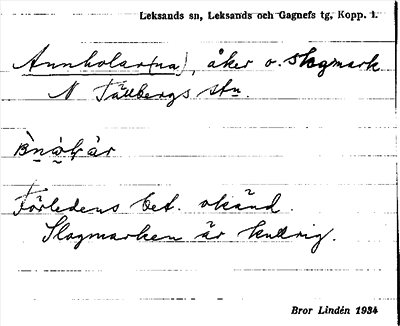 Leksands sn, Leksands och Gagnefs tg, Kopp. l.
Annholar(na), åker o. skogmark
N Tällbergs stn.
Förledens bet. okänd.
Skogmarken är kullrig.
Bror Lindén 1934